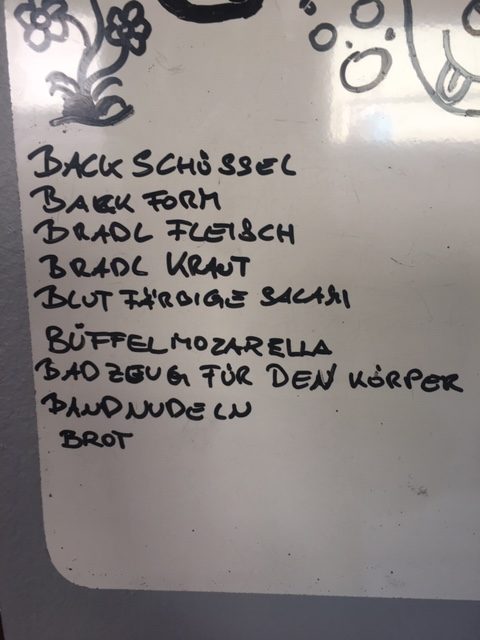 BACK SCHÜSSEL
BACK FORM
BRADL FLEISCH
BRADL KRAUT
BLUT FÄRBIGE SALAMI
BÜFFELMOZARELLA
BADZEUG FÜR DEN KÖRPER
BANDNUDELN
BROT